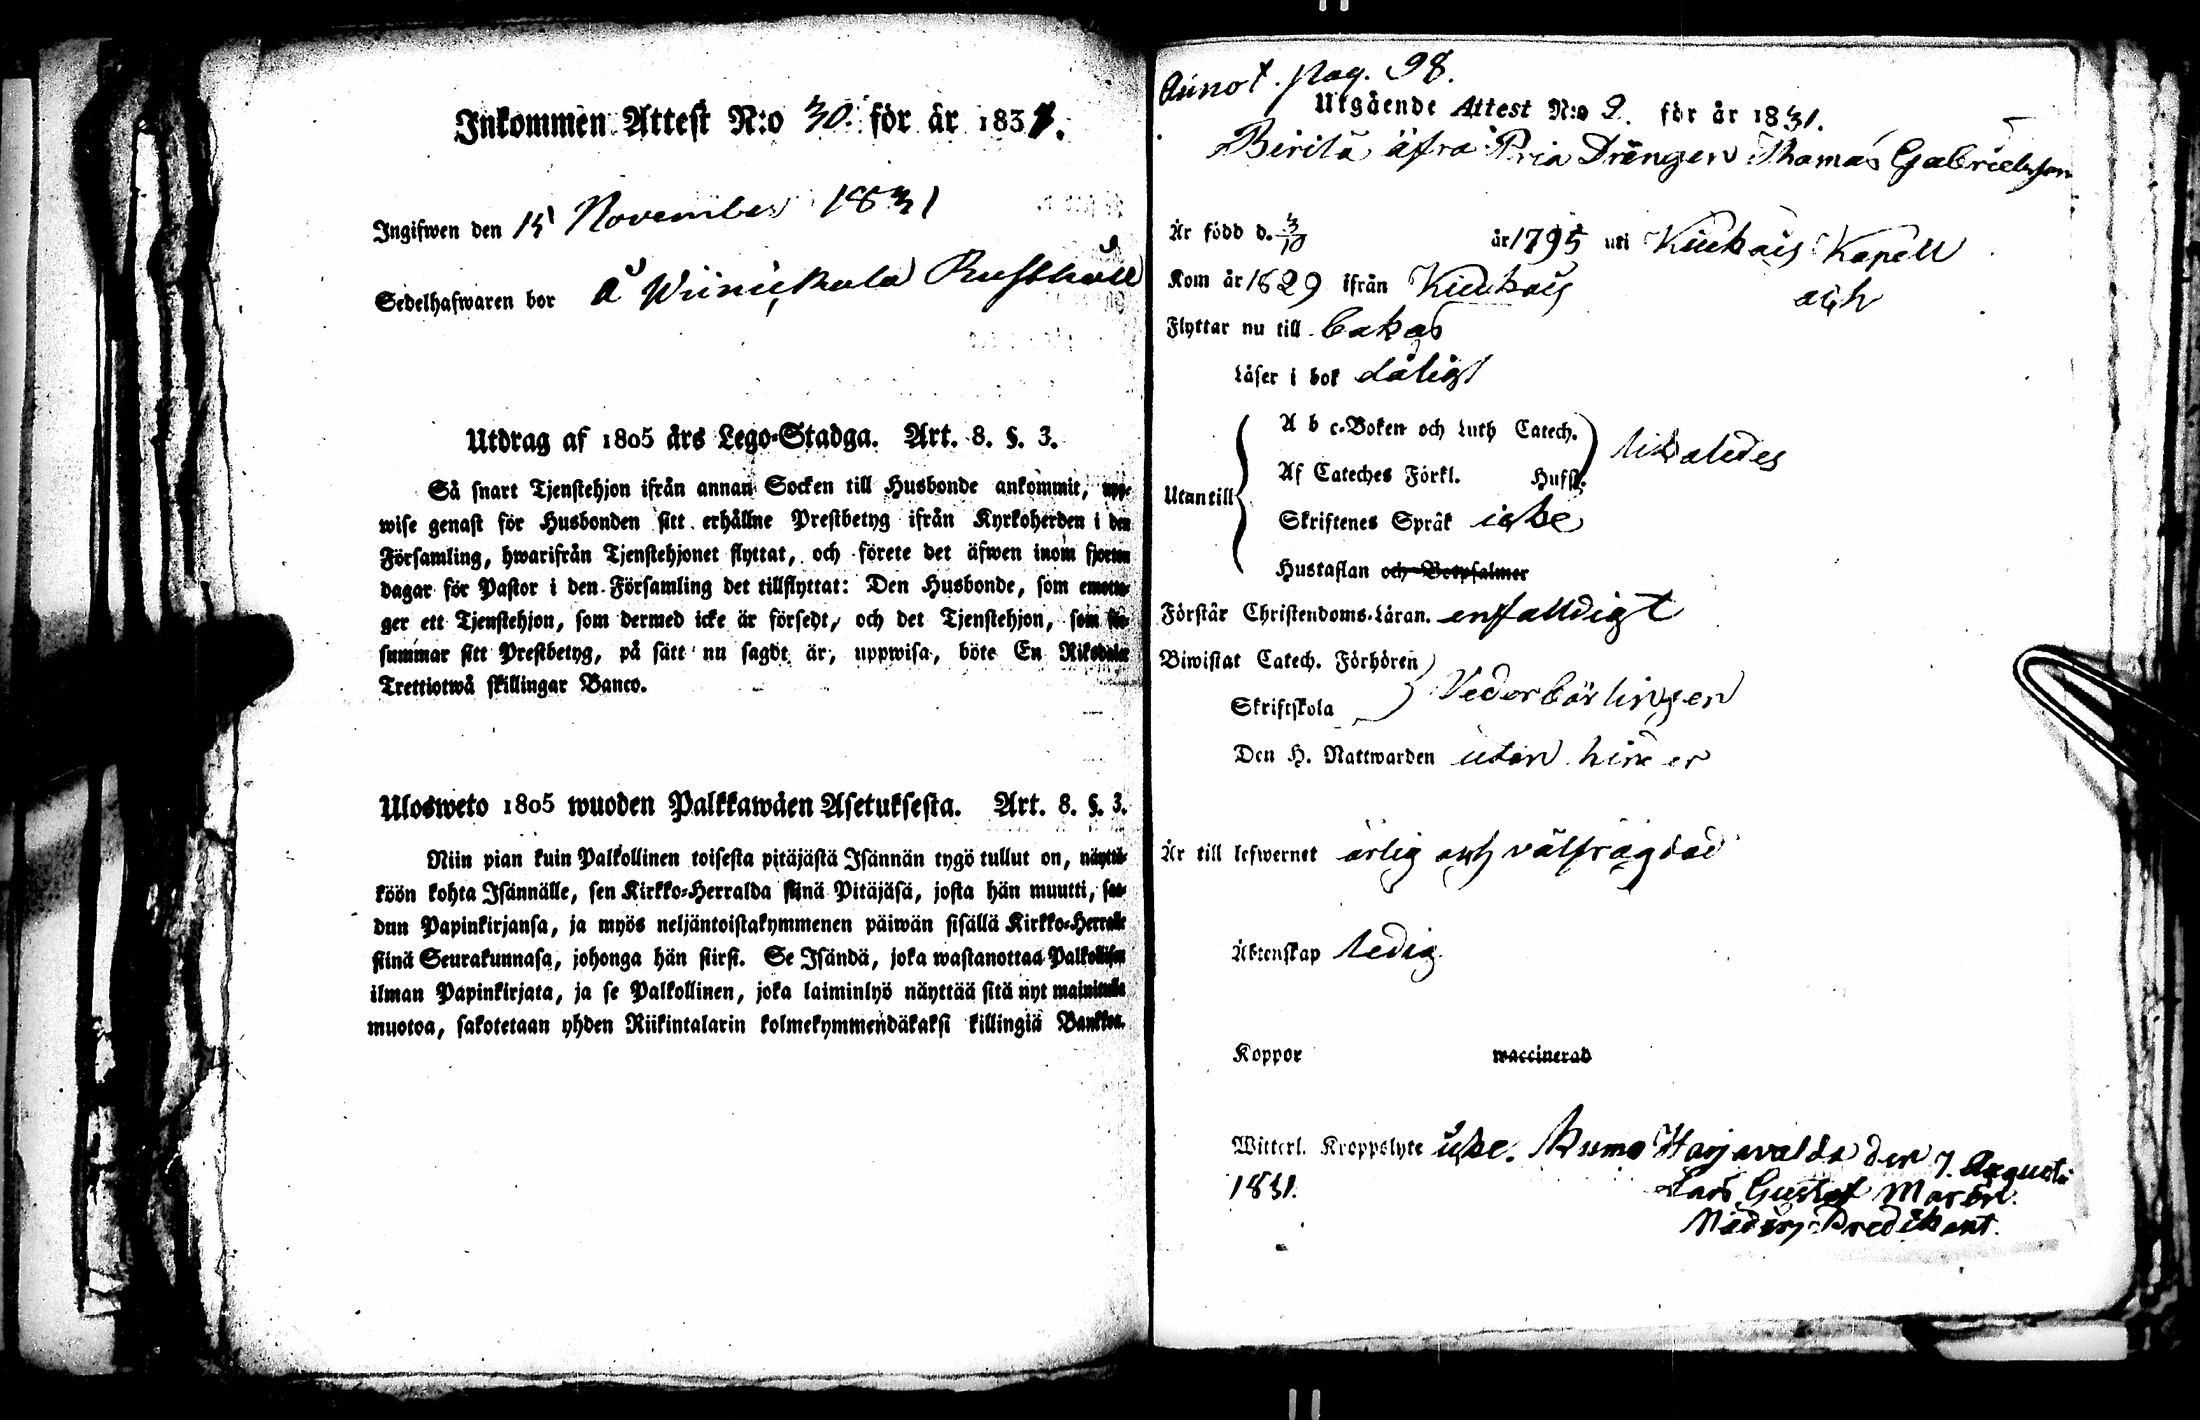 Inkommen Attest N:o 30. för år 1831.
Ingifwen den 15 November 1831
Sedelhafwaren bor å Wiinikala Rusthåll
Utdrag af 1805 års Lego-Stadga. Art. 8. §. 3.
Så snart Tjenstehjon ifrån annan Socken till Husbonde ankommit, upp-
wise genast för Husbonden sitt erhållne Prestbetyg ifrån Kyrkoherden i den
Församling, hwarifrån Tjenstehjonet flyttat, och förete det äfwen inom fjorton
dagar för Pastor i den Församling det tillflyttat: Den Husbonde, som emotta-
ger ett Tjenstehjon, som dermed icke är försedt, och det Tjenstehjon, som för-
summar sitt Prestbetyg, på sätt nu sagdt är, uppwisa, böte En Riksdaler
Trettiotwå skillingar Banco.
Ulosweto 1805 wuoden Palkkawäen Asetuksesta. Art. 8. §. 3.
Niin pian kuin Palkollinen toisesta pitäjästä Isännän tygö tullut on, näyttä-
köön kohta Isännälle, sen Kirkko-Herralda siinä Pitäjäsä, josta hän muutti, saa-
dun Papinkirjansa, ja myös neljäntoistakymmenen päiwän sisällä Kirkko-Herralle
siinä Seurakunnasa, johonga hän siirsi. Se Isändä, joka wastanottaa Palkollisen
ilman Papinkirjata, ja se Palkollinen, joka laiminlyö näyttää sitä nyt mainitulla
muotoa, sakotetaan yhden Riikintalarin kolmekymmendäkaksi killingiä Bankkoa.
Annot. pag. 98.
Utgående Attest N:o 2. för år 1831.
Drängen Thomas Gabrielsson
Är född d. 3/10 år 1795 uti Kiukais Kapell
Kom år 1829 ifrån Kiukais och
Flyttar nu till bakas
Läser i bok dåligt
Utantill
A b c-Boken och Luth Catech.
Af Cateches Förkl. Hufst. likaledes
Skriftenes Språk icke
Hustaflan och Botpsalmer
Förstår Christendoms-Läran. enfalldigt
Biwistat Catech. Förhören
Skriftskola Vederbörligen
Den H. Nattwarden utan hinder
Är till lefwernet ärlig och välfrägdad
Äktenskap ledig
Koppor waccinerad
Witterl. Kroppslyte icke. Kumo Harjavalda den 7. Augusti
1831. Lars Gustaf
Predikant.